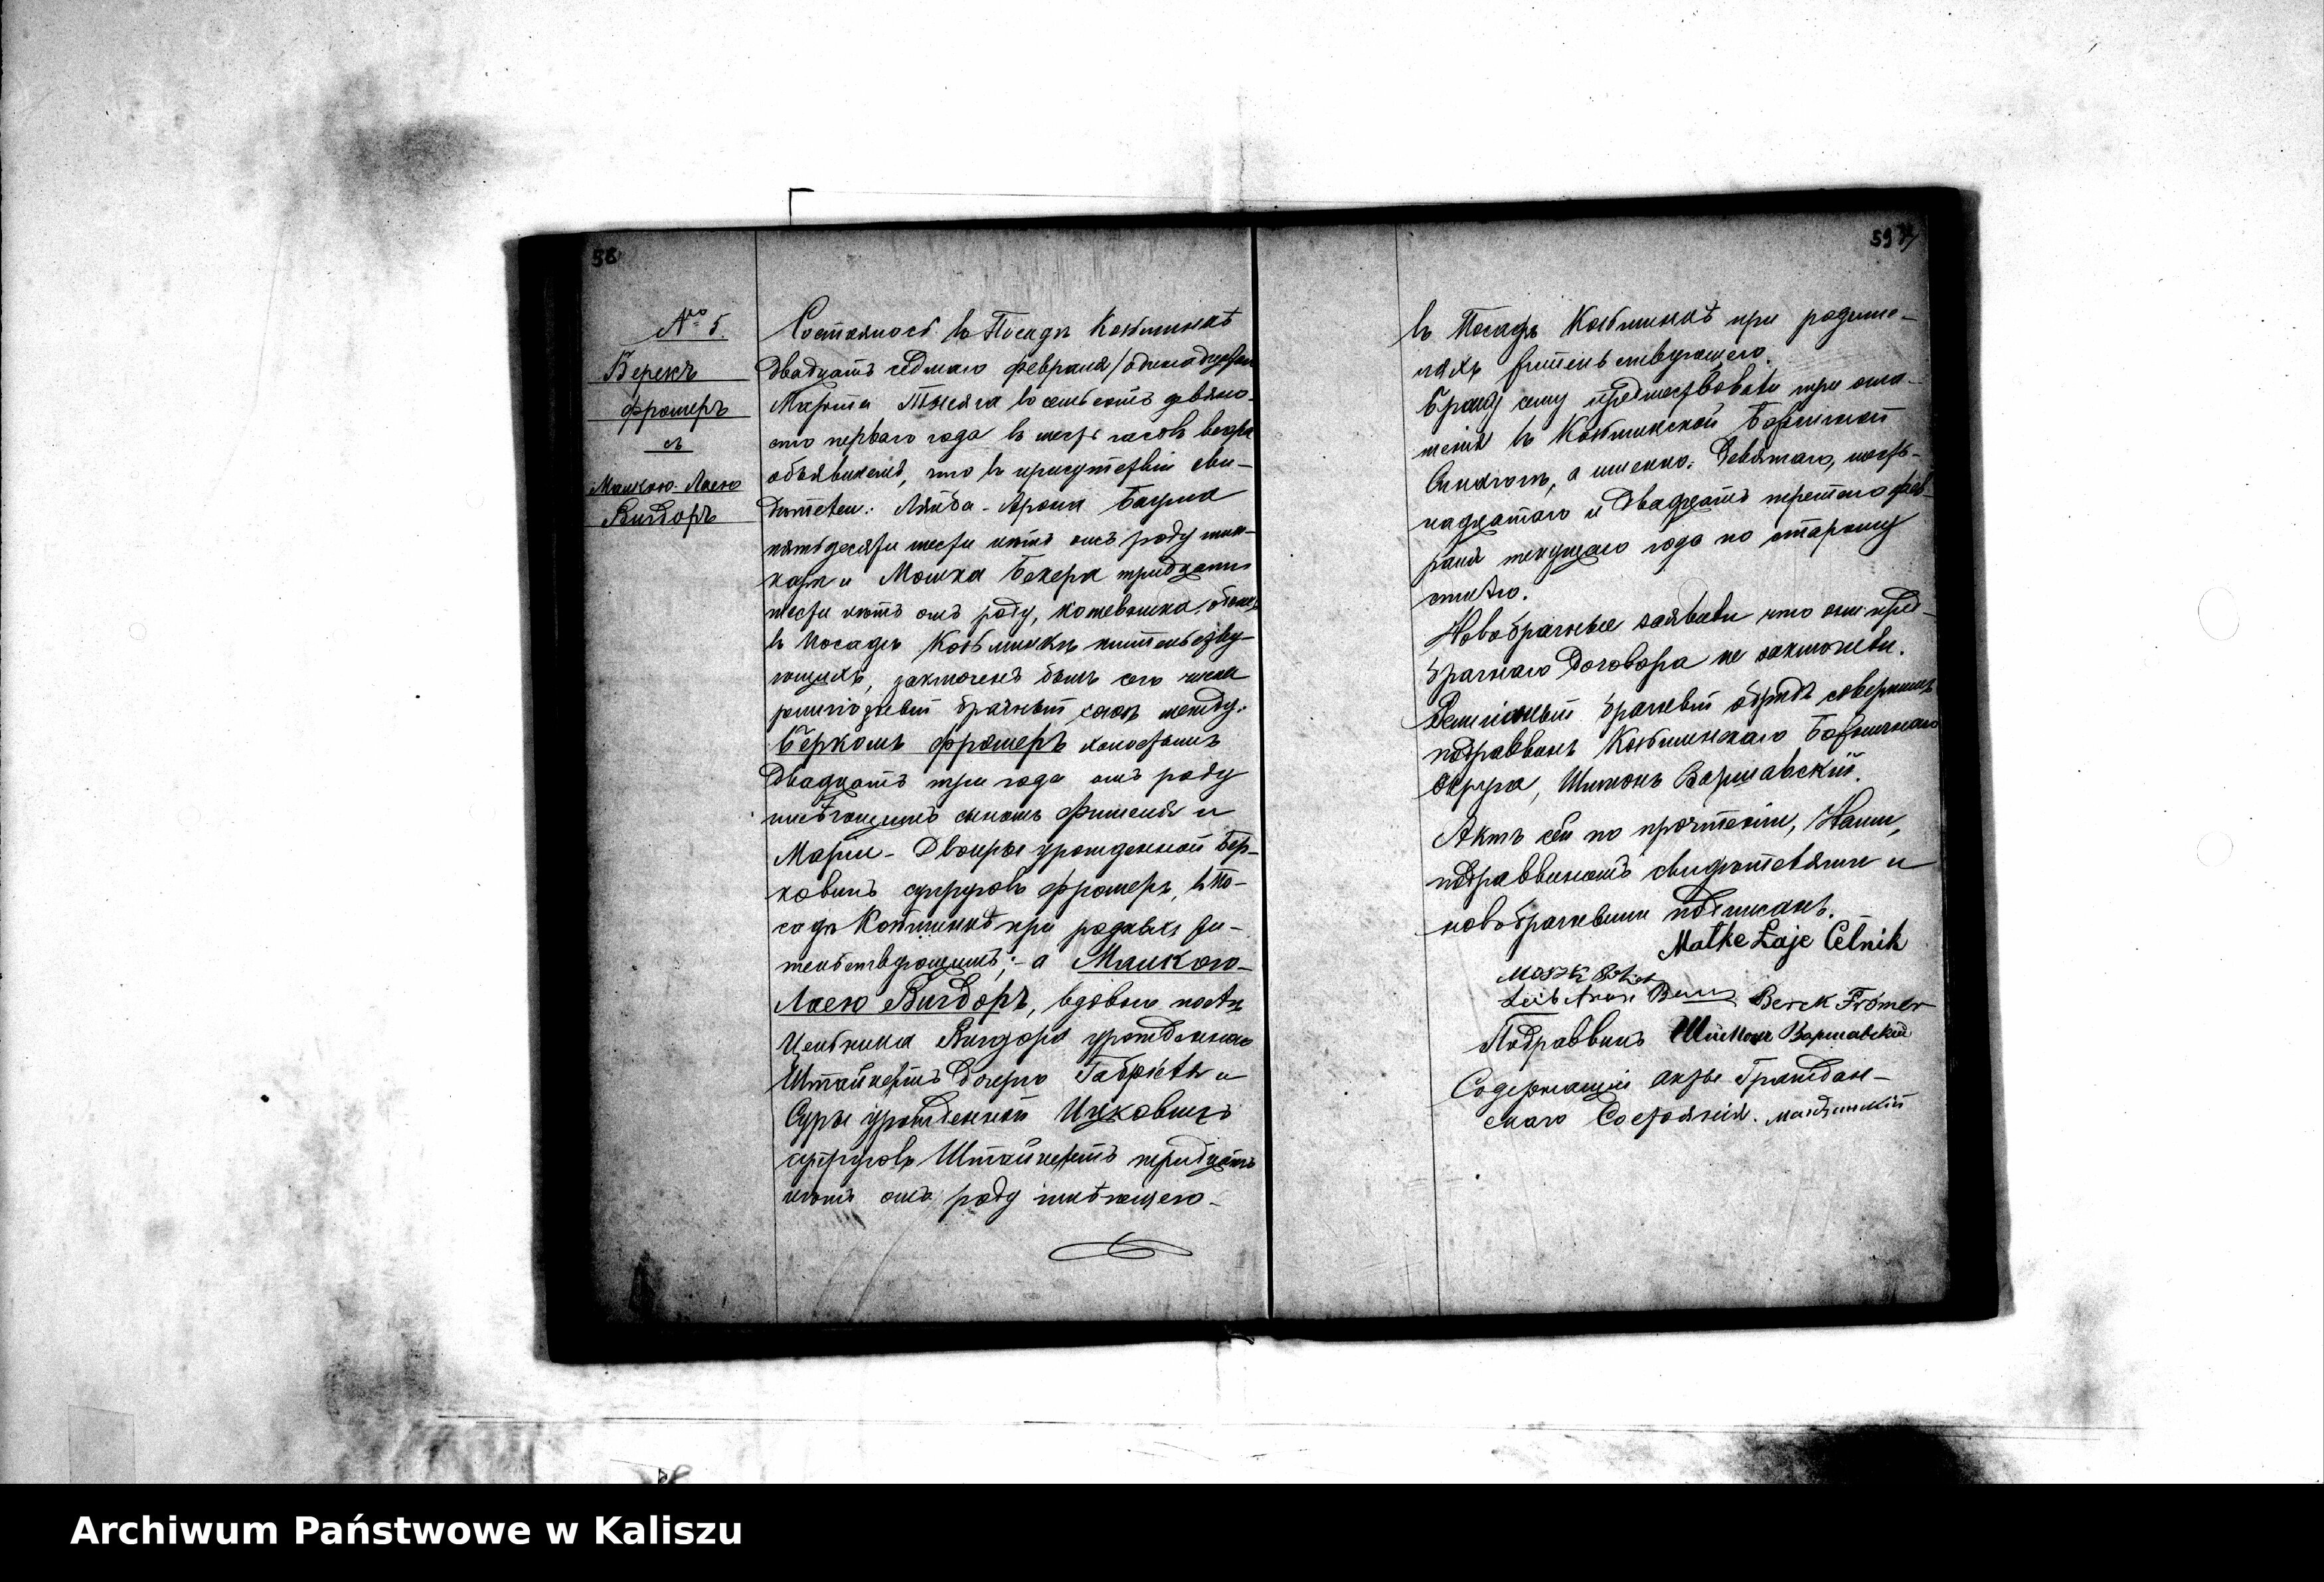 58
№ 5.
Берекъ
Фромеръ
съ
Малкою-Лаею
Вигдоръ
Состоялось въ Посадѣ Козьминкѣ
двадцать седьмаго Февраля /одинадцатаго
Марта Тысяча восемьсотъ девяно-
сто перваго года въ шесть часовъ вечера
объявляемъ, что въ присутствіи сви-
дѣтелей: Ляйба-Арона Баума
пятьдесяти шести лѣтъ отъ роду
и Мошка Бекера тридцати
шести лѣтъ отъ роду,
въ Посадѣ Козьминкѣ жительству-
ющихъ, заключенъ былъ сего числа
религіозный брачный союзъ между:
Беркомъ Фромеръ холостымъ
двадцать три года отъ роду
имѣющимъ сыномъ Фишеля и
Маріи-Двойры урожденной Бер-
ковичъ супруговъ Фромеръ, въ По-
садѣ Козьминкѣ при родныхъ жи-
тельствующимъ;- а Малкою-
Лаею Вигдоръ, вдовою послѣ
Цельника Вигдора урожденною
Штайнертъ дочерью Габріеля и
Суры урожденной Ицковичъ
супруговъ Штайнертъ тридцать
лѣтъ отъ роду имѣющею-
59
въ Посадѣ Козьминкѣ при родите-
ляхъ жительствующею.
Браку сему предшествовали три огла-
шенія въ Козьминской Божничной
Синагогѣ, а именно: девятаго, шест-
надцатаго и двадцать третьяго Фев-
раля текущаго года по старому
стилю.
Новобрачные заявили что они пред-
брачнаго договора не заключили.
Религіозный брачный обрядъ совершилъ
подраввинъ Козьминскаго Божничнаго
округа, Шимонъ Варшавскій.
Актъ сей по прочтеніи, Нами,
подраввиномъ свидѣтелями и
новобрачными подписанъ.
Małke Łaje Celnik
Moszk
Leib Aron Baum Berek Frömer
Подраввинъ Шимонъ Варшавскій
Содержащій акты Граждан-
скаго Состоянія.
Archiwum Państwowe w Kaliszu